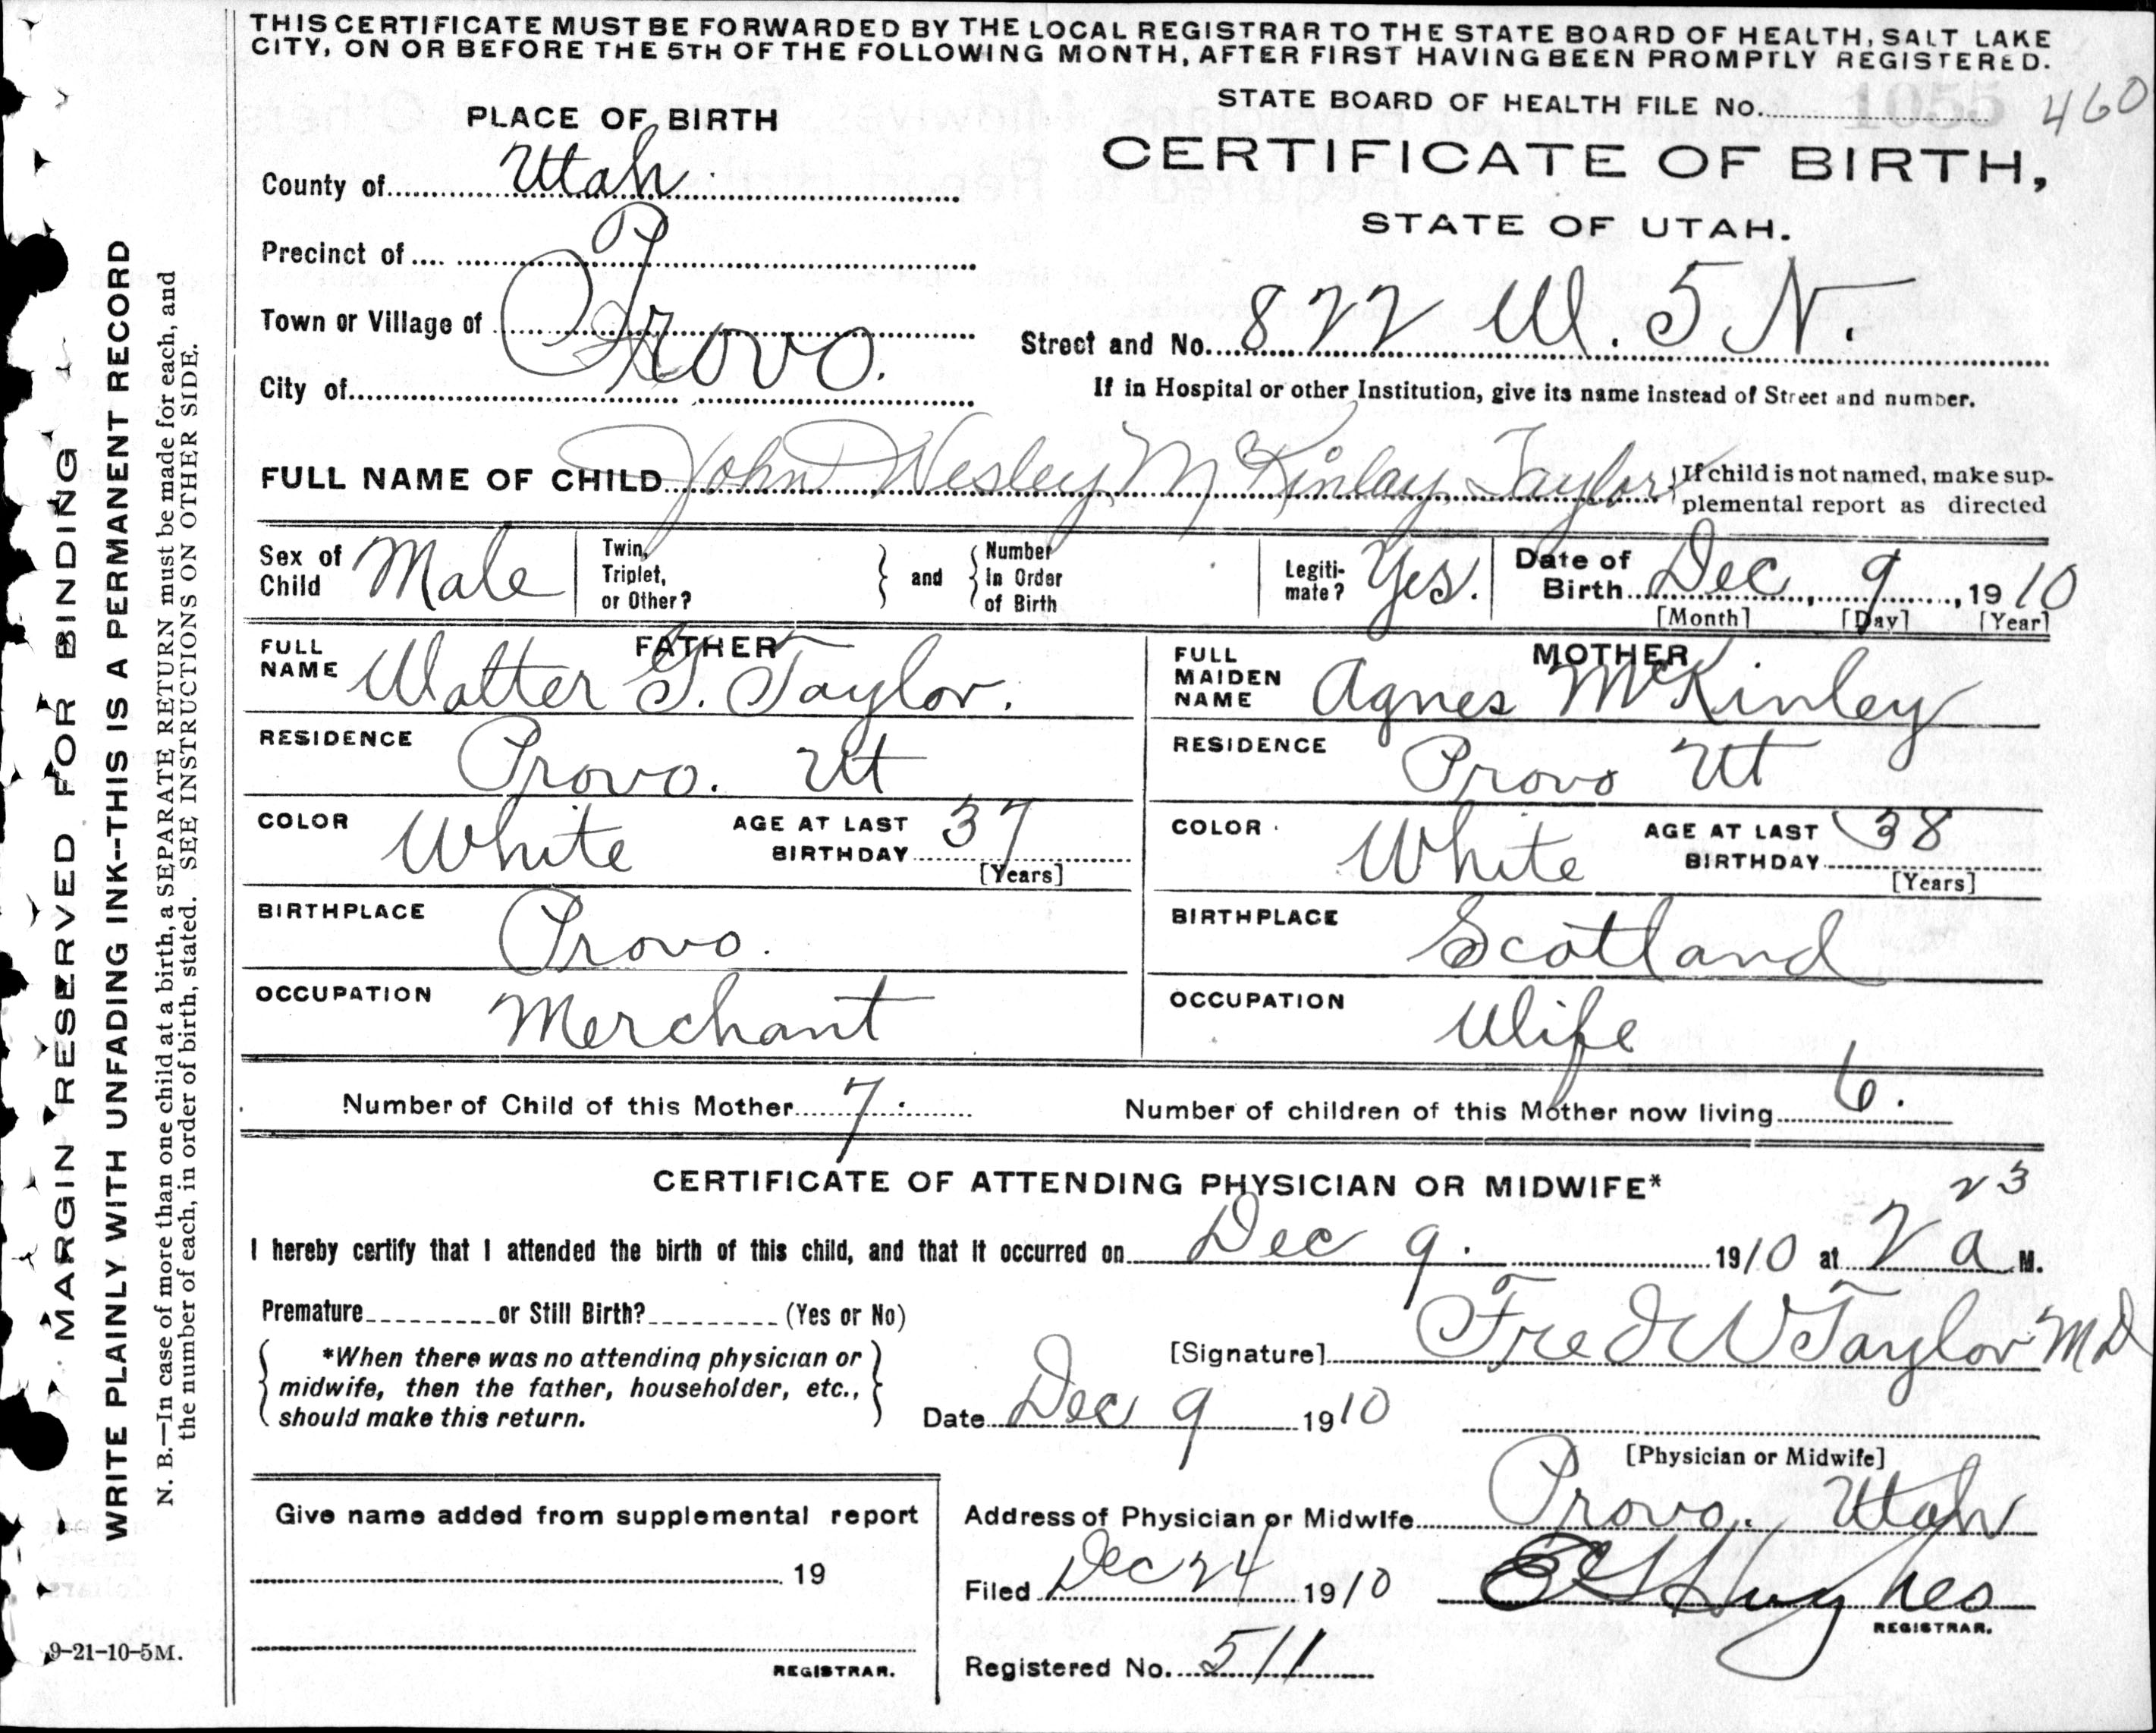 THIS CERTIFICATE MUST BE FORWARDED BY THE LOCAL REGISTRAR TO THE STATE BOARD OF HEALTH, SALT LAKE
CITY, ON OR BEFORE THE 5TH OF THE FOLLOWING MONTH, AFTER FIRST HAVING BEEN PROMPTLY REGISTERED.
STATE BOARD OF HEALTH FILE No. 1055 460
PLACE OF BIRTH
CERTIFICATE OF BIRTH,
STATE OF UTAH.
County of Utah
Precinct of
Town or Village of Provo.
City of
Street and No. 822 W. 5 N.
If in Hospital or other Institution, give its name instead of Street and number.
FULL NAME OF CHILD John Wesley McKinlay Taylor
If child is not named, make sup-
plemental report as directed
Sex of Child Male
Twin, Triplet, or Other? and Number in Order of Birth
Legiti-mate? Yes.
Date of Birth Dec 9, 1910
[Month] [Day] [Year]
FATHER
FULL NAME Walter G. Taylor.
RESIDENCE Provo. Ut
COLOR White AGE AT LAST BIRTHDAY 37
[Years]
BIRTHPLACE Provo.
OCCUPATION Merchant
MOTHER
FULL MAIDEN NAME Agnes McKinley
RESIDENCE Provo Ut
COLOR White AGE AT LAST BIRTHDAY 38
[Years]
BIRTHPLACE Scotland
OCCUPATION Wife
Number of Child of this Mother 7. Number of children of this Mother now living 6.
CERTIFICATE OF ATTENDING PHYSICIAN OR MIDWIFE*
23
I hereby certify that I attended the birth of this child, and that it occurred on Dec 9. 1910 at 2 a M.
Premature or Still Birth? (Yes or No)
*When there was no attending physician or
midwife, then the father, householder, etc.,
should make this return.
[Signature] Fred W Taylor MD
Date Dec 9 1910
[Physician or Midwife]
Address of Physician or Midwife Provo. Utah
Filed Dec 24 1910 Hughes
REGISTRAR.
Registered No. 511
Give name added from supplemental report
19
REGISTRAR.
MARGIN RESERVED FOR BINDING
WRITE PLAINLY WITH UNFADING INK--THIS IS A PERMANENT RECORD
N. B.—In case of more than one child at a birth, a SEPARATE RETURN must be made for each, and
the number of each, in order of birth, stated. SEE INSTRUCTIONS ON OTHER SIDE.
9-21-10-5M.